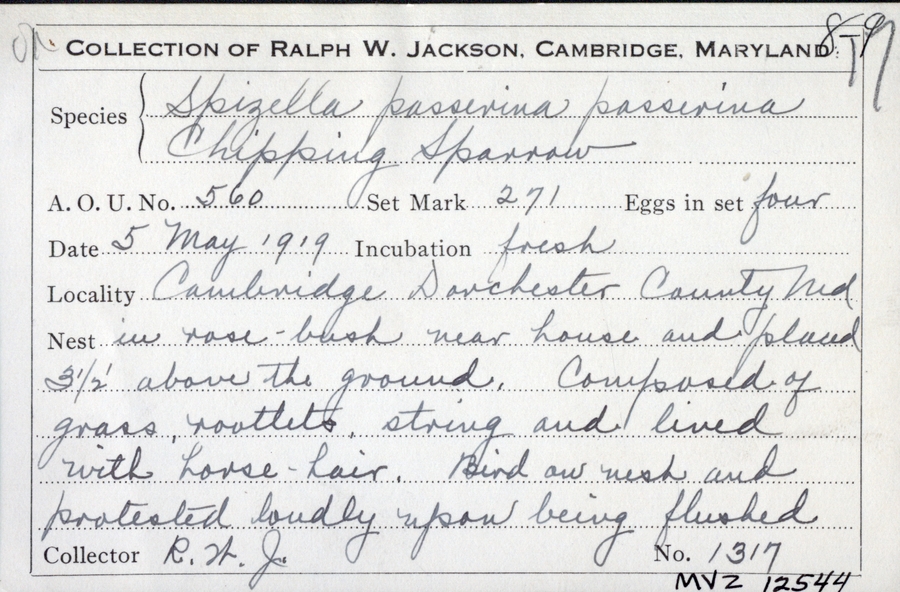 COLLECTION OF RALPH W. JACKSON, CAMBRIDGE, MARYLAND
Species { Spizella passerina passerina
Chipping Sparrow
A. O. U. No. 560 Set Mark 271 Eggs in set four
Date 5 May 1919 Incubation fresh
Locality Cambridge Dorchester County Md
Nest in rose-bush near house and placed
3 1/2' above the ground. Composed of
grass, rootlets, string and lined
with horse-hair. Bird on nest and
protested loudly upon being flushed
Collector R. W. J. No. 1317
MVZ 12544